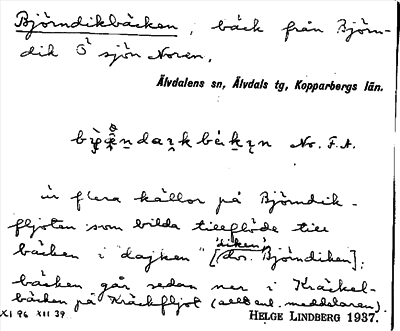 Björndikbäcken, bäck från Björn-
dik Ö sjön Noren.
Älvdalens sn, Älvdals tg, Kopparbergs län.
No. F.A.
är flera källor på Björndik-
fljoten som bilda tillflöde till
diken
bäcken i "dajken" [ Björndiken];
bäcken går sedan ner i Kräckel-
bäcken på Kräckfljot (allt enl. meddelaren).
XI 96 XII 39 HELGE LINDBERG 1937.